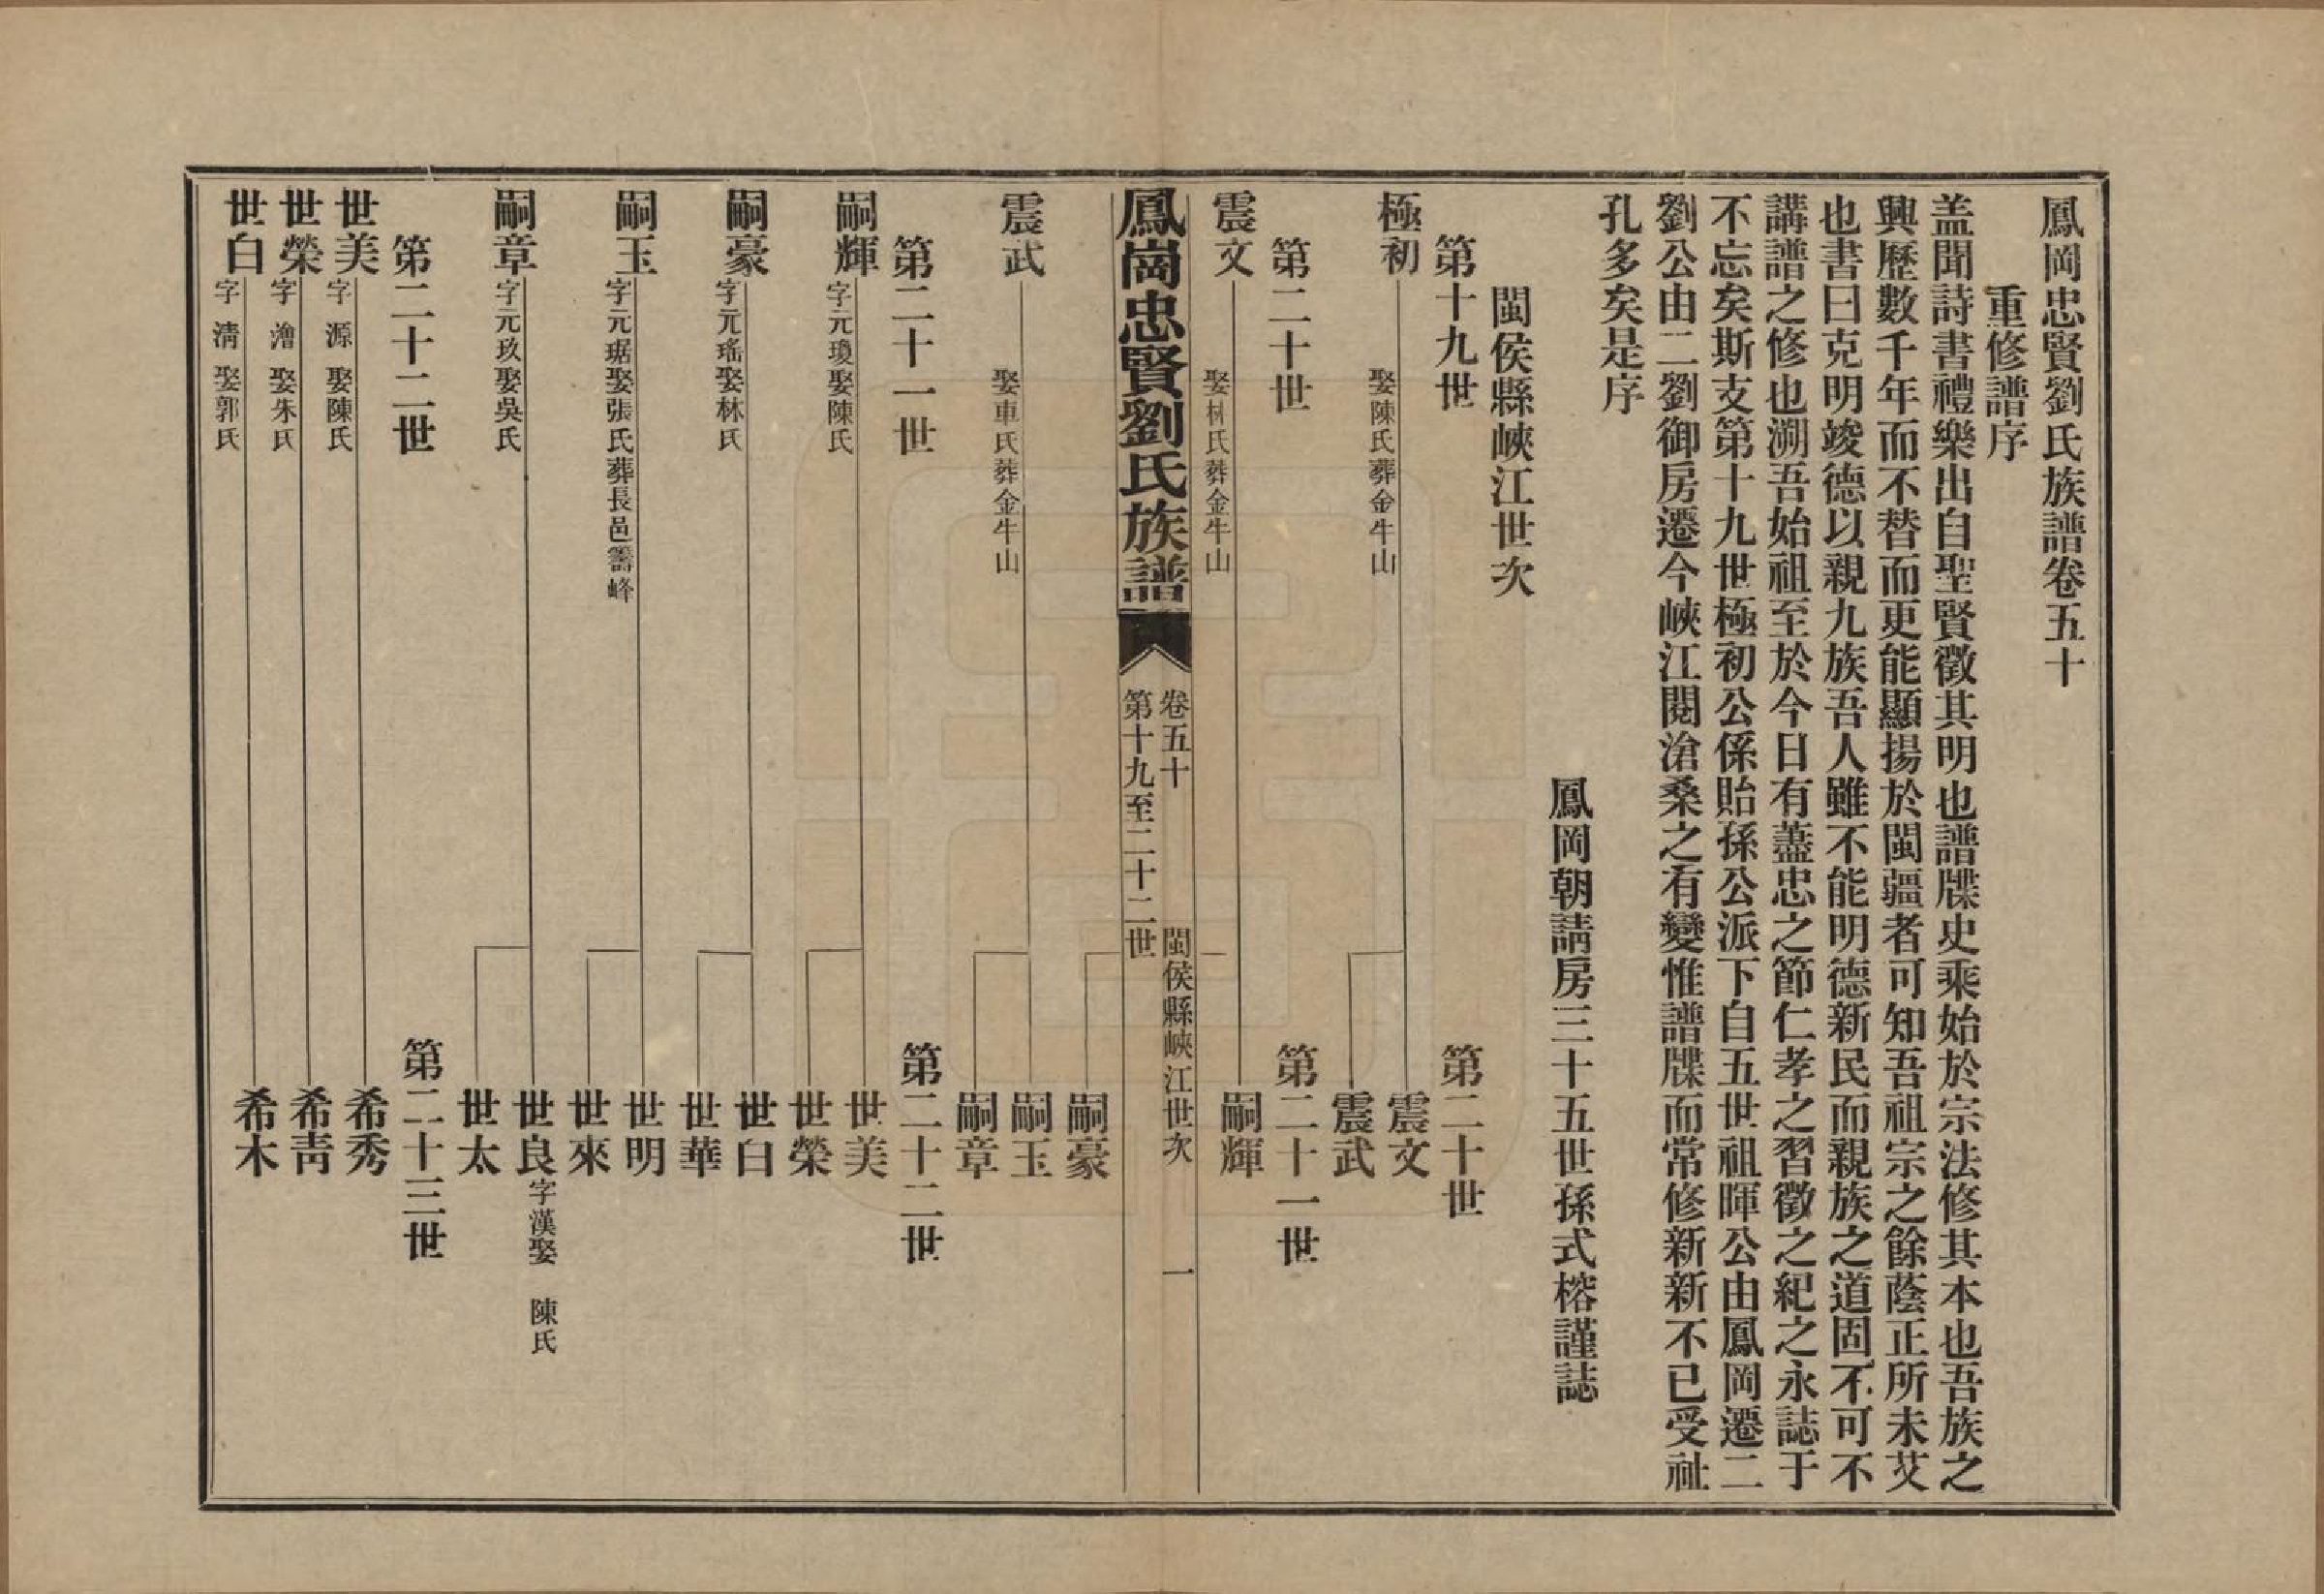 鳳岡忠賢劉氏族譜卷五十
重修譜序
盖聞詩書禮樂出自聖賢徵其明也譜牒史乘始於宗法修其本也吾族之
興歷數千年而不替而更能顯揚於閩疆者可知吾祖宗之餘蔭正所未艾
也書曰克明竣德以親九族吾人雖不能明德新民而親族之道固不可不
講譜之修也溯吾始祖至於今日有藎忠之節仁孝之習徵之紀之永誌于
不忘矣斯支第十九世極初公係貽孫公派下自五世祖暉公由鳳岡遷二
劉公由二劉御房遷今峽江閱滄桑之有變惟譜牒而常修新新不已受祉
孔多矣是序
鳳岡朝請房三十五世孫式榕謹誌
閩侯縣峽江世次
第十九世
第二十世
極初
娶陳氏葬金牛山
震文
震武
第二十世
第二十一世
震文
娶林氏葬金牛山
嗣輝
鳳崗忠賢劉氏族譜
卷五十
閩侯縣峽江世次
一
第十九至二十二世
嗣豪
震武
娶車氏葬金牛山
嗣玉
嗣章
第二十一世
第二十二世
嗣輝
字元瓊娶陳氏
世美
世榮
嗣豪
字元瑤娶林氏
世白
世華
嗣玉
字元琚娶張氏葬長邑霽峰
世明
世來
嗣章
字元玖娶吳氏
世良
字漢娶 陳氏
世太
第二十二世
第二十三世
世美
字 源 娶陳氏
希秀
世榮
字 澮 娶朱氏
希靑
世白
字 淸 娶郭氏
希木